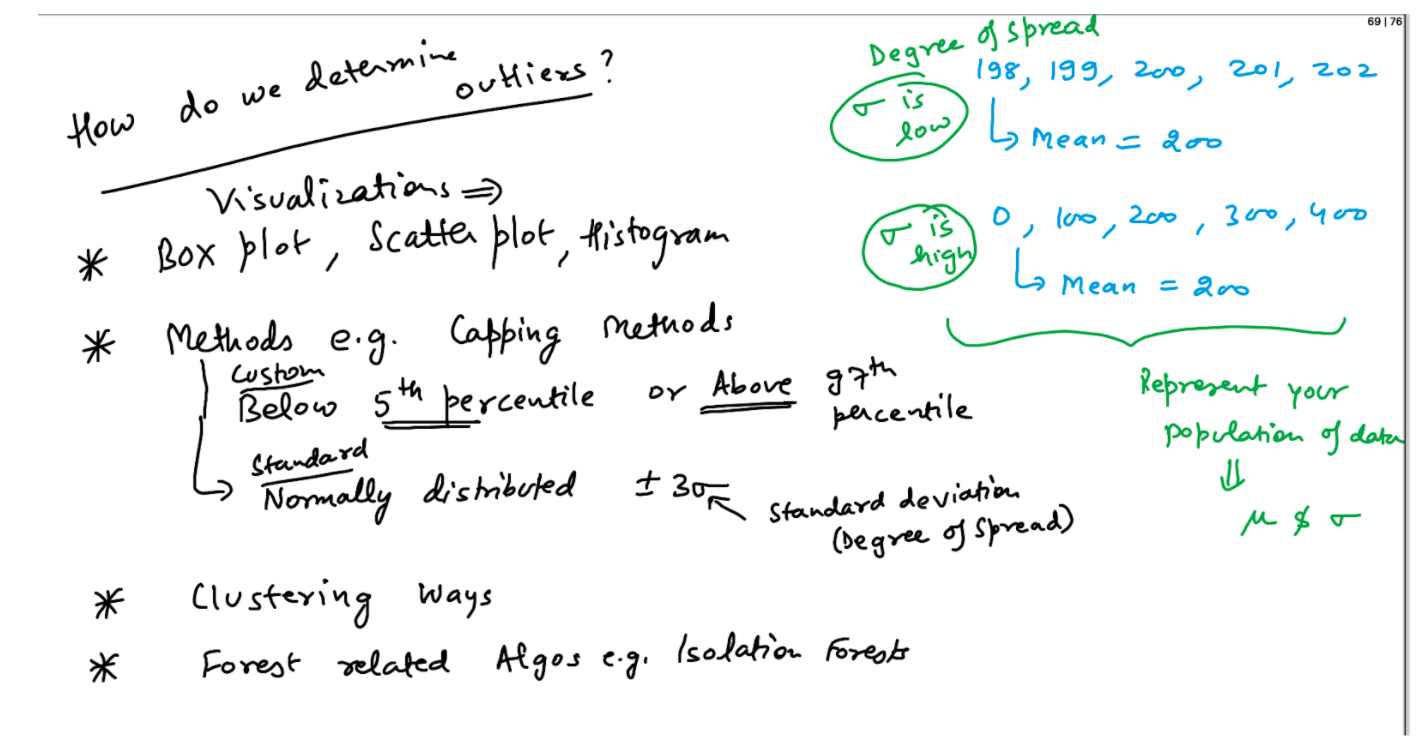 69 | 76
How do we determine
outliers?
Visualizations ⇒
* Box plot, Scatter plot, Histogram
* Methods e.g. Capping Methods
Custom
Below 5th percentile or Above 97th
percentile
Standard
Normally distributed ± 3σ
Standard deviation
(Degree of Spread)
* Clustering Ways
* Forest related Algos e.g. Isolation Forests
Degree of Spread
198, 199, 200, 201, 202
σ is
low
↳ Mean = 200
0, 100, 200, 300, 400
σ is
high
↳ Mean = 200
Represent your
population of data
⇓
μ & σ